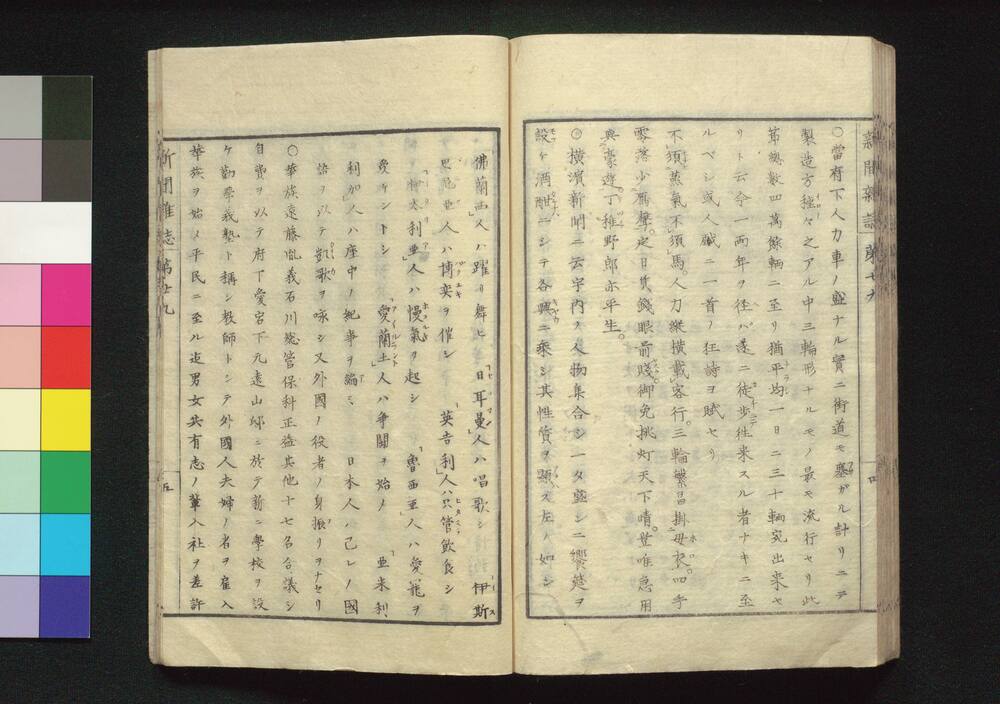 新聞雑誌 第廿九
四
○當府下人力車ノ盛ナル實ニ街道モ塞ガル計リニテ
製造方種々之アル中三輪形ナルモノ最モ流行セリ此
節總數四萬餘輌ニ至リ猶平均一日ニ三十輌宛出来セ
リト云今一両年ヲ径バ遂ニ徒歩徃来スル者ナキニ至
ルベシ或人戯ニ一首ノ狂詩ヲ賦セリ
不須蒸氣不須馬。人力縱横載客行。三輪繁昌掛母衣。四手
零落少雁聲。定日貰錢眼前賤。御免挑灯天下晴。豈唯急用
與豪遊。丁稚野郎亦平生。
○横濱新聞ニ云宇内ノ人物集合シ一夕盛ンニ饗筵ヲ
設ケ酒酣ニシテ各興ニ乘シ其性質ヲ顕ス左ノ如シ
佛蘭西人ハ躍リ舞ヒ 日耳曼人ハ唱歌シ 伊斯
巴尼亜人ハ博奕ヲ催シ 英吉利人ハ只管飲食シ
利亜人ハ慢氣ヲ起シ 魯西亜人ハ愛寵ヲ
受ケントシ 愛蘭土人ハ争鬪ヲ始メ 亜米利
利加人ハ座中ノ紀事ヲ編ミ 日本人ハ己レノ國
語ヲ以テ凱歌ヲ咏シ又外國ノ役者ノ身振リヲナセリ
○華族遠藤胤義石川總管保科正益其他十七名合議シ
自費ヲ以テ府下愛宕下元遠山邸ニ於テ新ニ學校ヲ設
ケ勸學義塾ト稱シ教師トシテ外國人夫婦ノ者ヲ雇入
華族ヲ始メ平民ニ至ル迄男女共有志ノ輩入社ヲ差許
新聞雑誌 第廿九
五